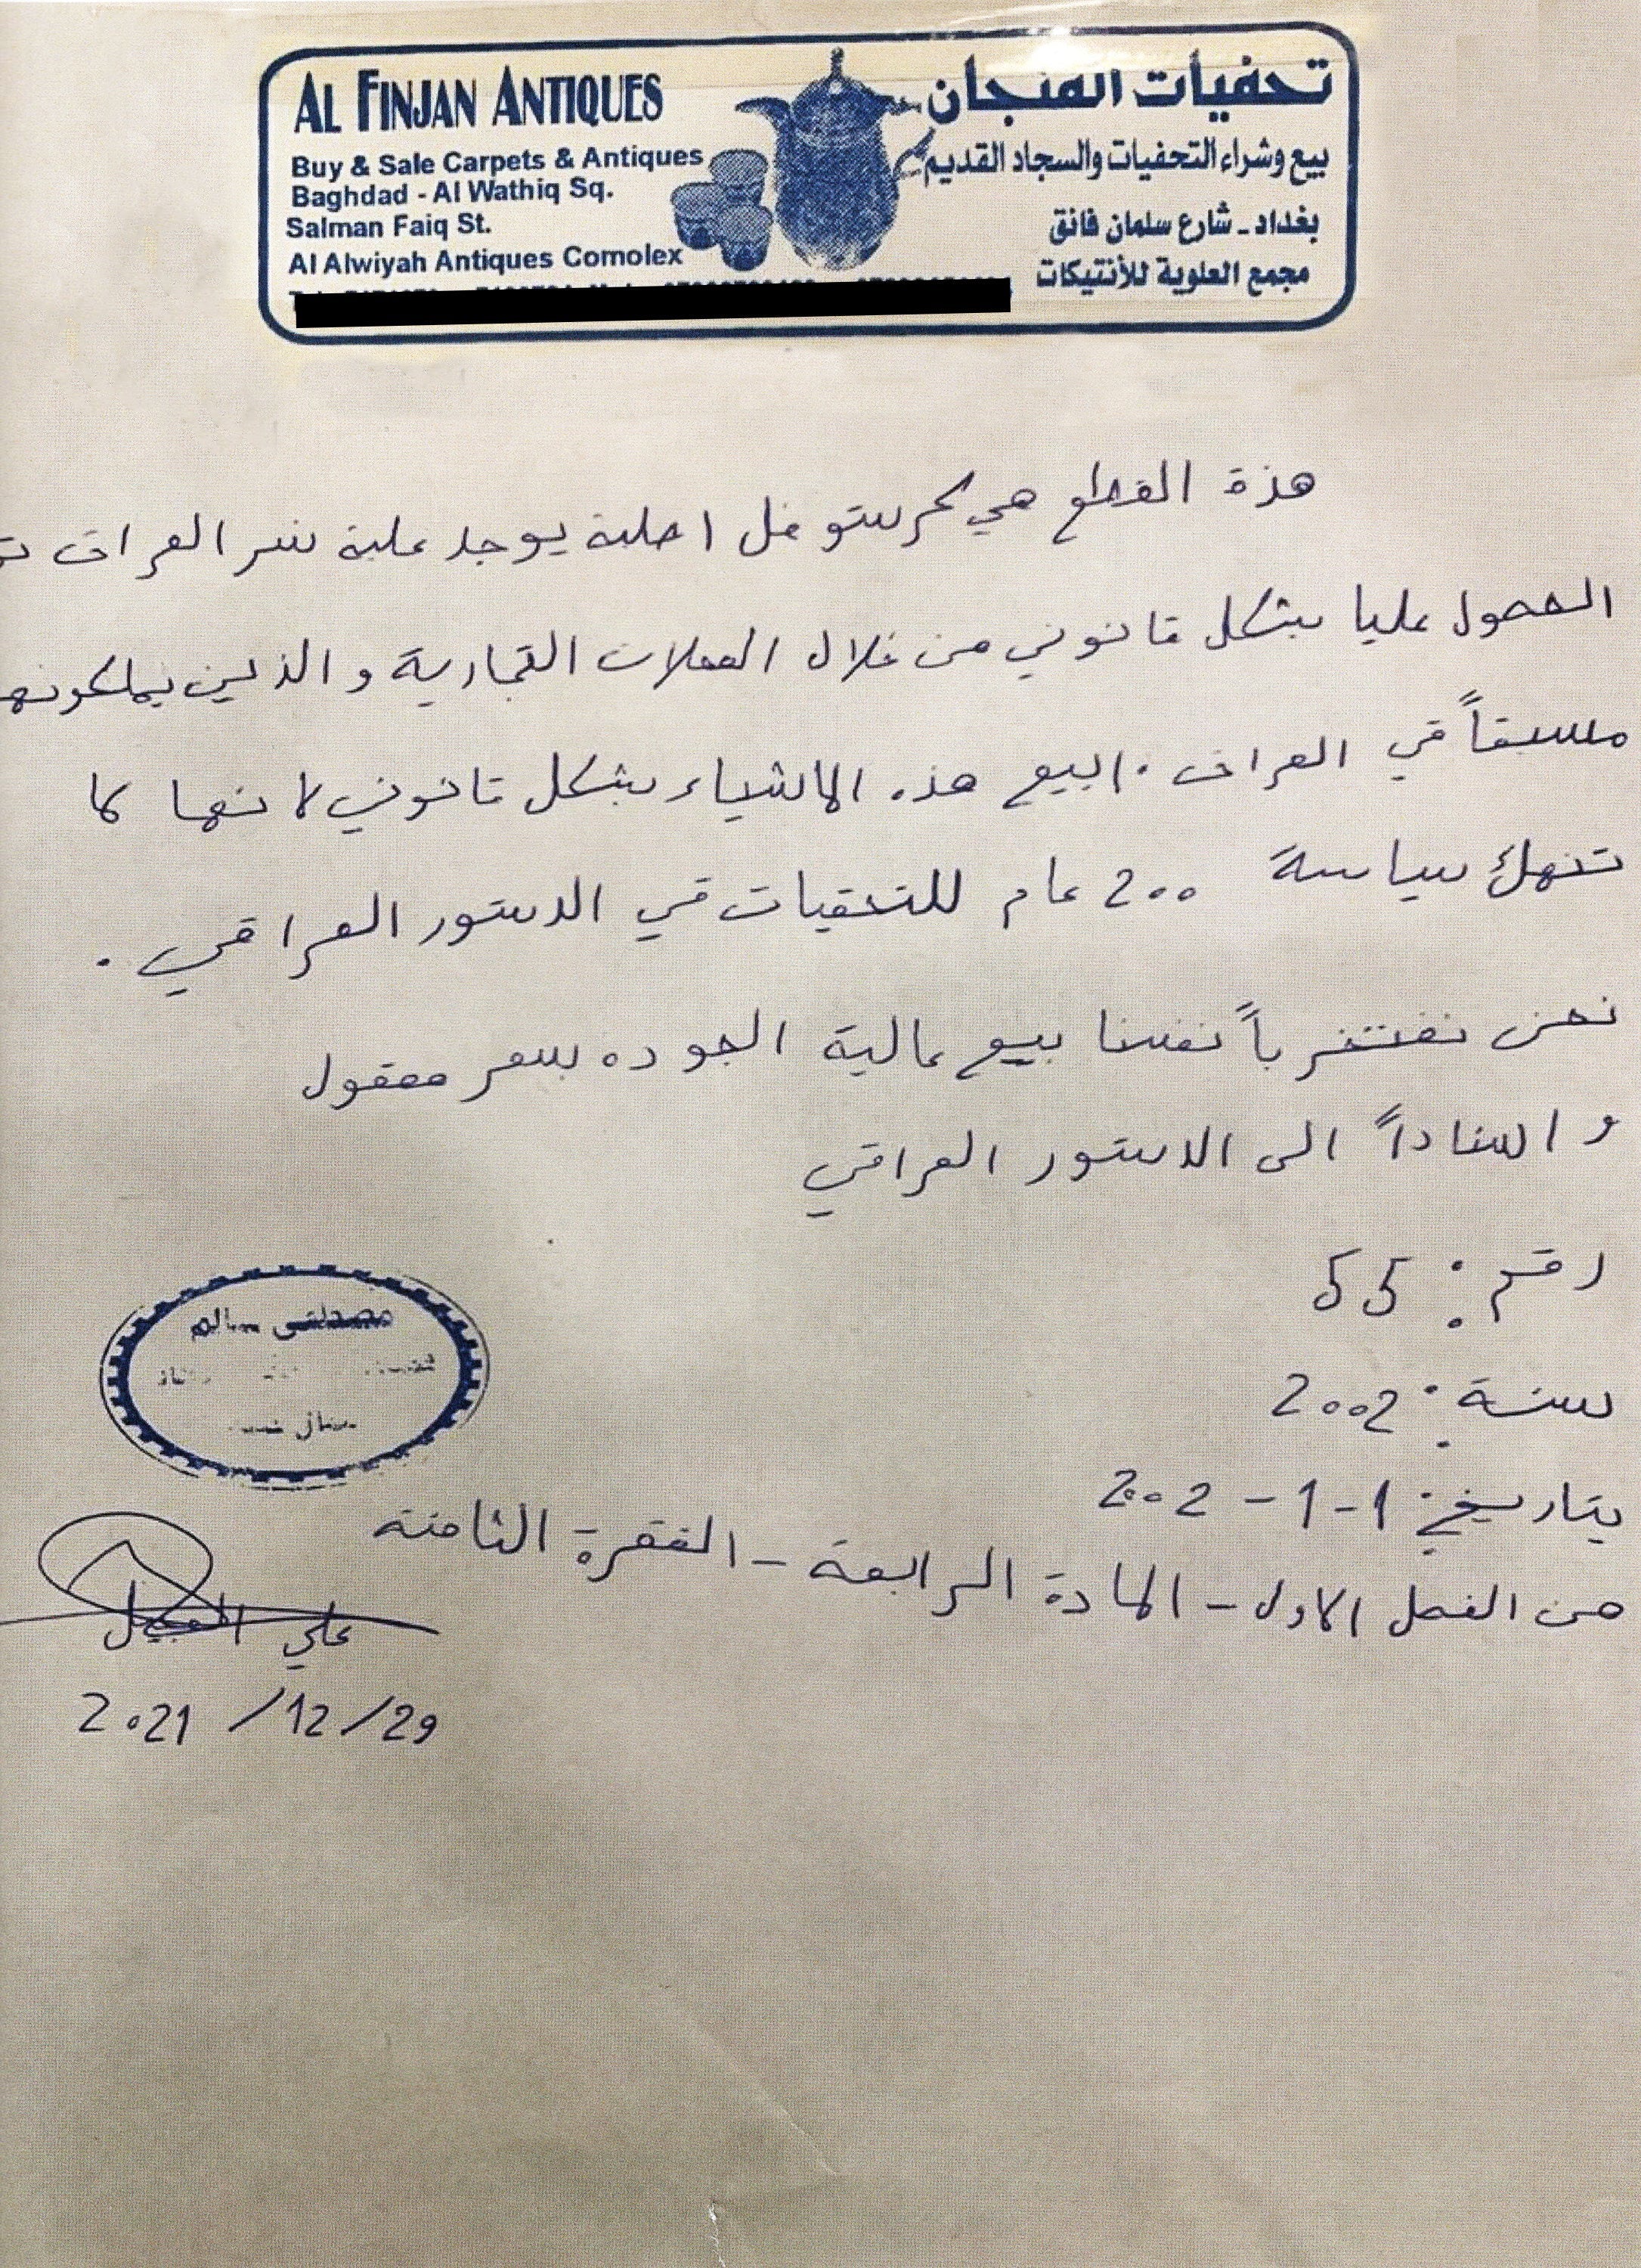 AL FINJAN ANTIQUES
Buy & Sale Carpets & Antiques
Baghdad - Al Wathiq Sq.
Salman Faiq St.
Al Alwiyah Antiques Comolex
تحفيات الفنجان
بيع وشراء التحفيات والسجاد القديم
بغداد - شارع سلمان فائق
مجمع العلوية للأنتيكات
هذة القطع هي كرستوفل اصلية يوجد علية نسر العراق
الحصول عليا بشكل قانوني من خلال المحلات التجارية والذين يملكونها
مسبقاً في العراق . ابيع هذه الاشياء بشكل قانوني لانها لا
تنهك سياسة 200 عام للتحفيات في الدستور العراقي .
نحن نفتخر بأنفسنا بيع عالية الجوده بسعر معقول
و استناداً الى الدستور العراقي
رقم : 55
سنة : 2002
بتاريخ : 1-1-2002
من الفصل الاول - المادة الرابعة - الفقرة الثامنة
مصطفى سالم
علي
2021/12/29